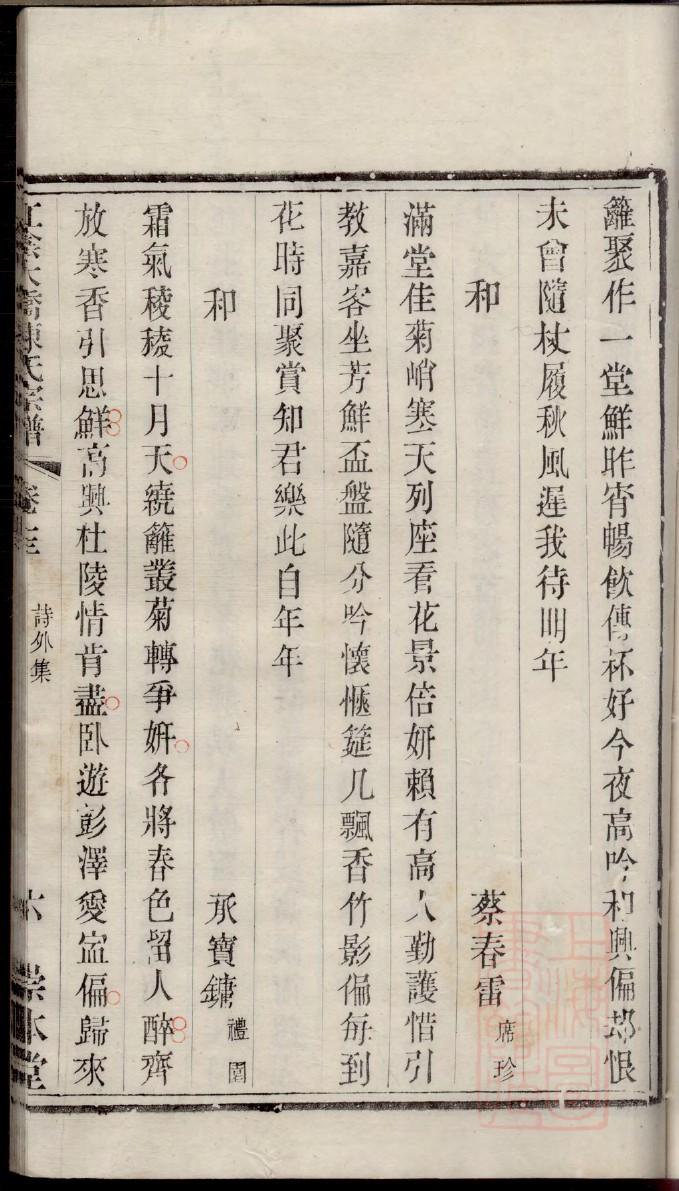 籬聚作一堂鮮昨宵暢飲傳杯好今夜高吟和興偏却恨
未曾隨杖履秋風遲我待明年
和 蔡春雷 席珍
滿堂佳菊峭寒天列座看花景倍妍賴有高人勤護惜引
教嘉客坐芳鮮盃盤隨分吟懷愜筵几飄香竹影偏每到
花時同聚賞知君樂此自年年
和 承寶鏞 禮園
霜氣稜稜十月天繞籬叢菊轉爭妍各將春色留人醉齊
放寒香引思鮮高興杜陵情肯盡臥遊彭澤愛寍偏歸來
江陰大橋陳氏宗譜 卷十三 詩外集 六 崇本堂